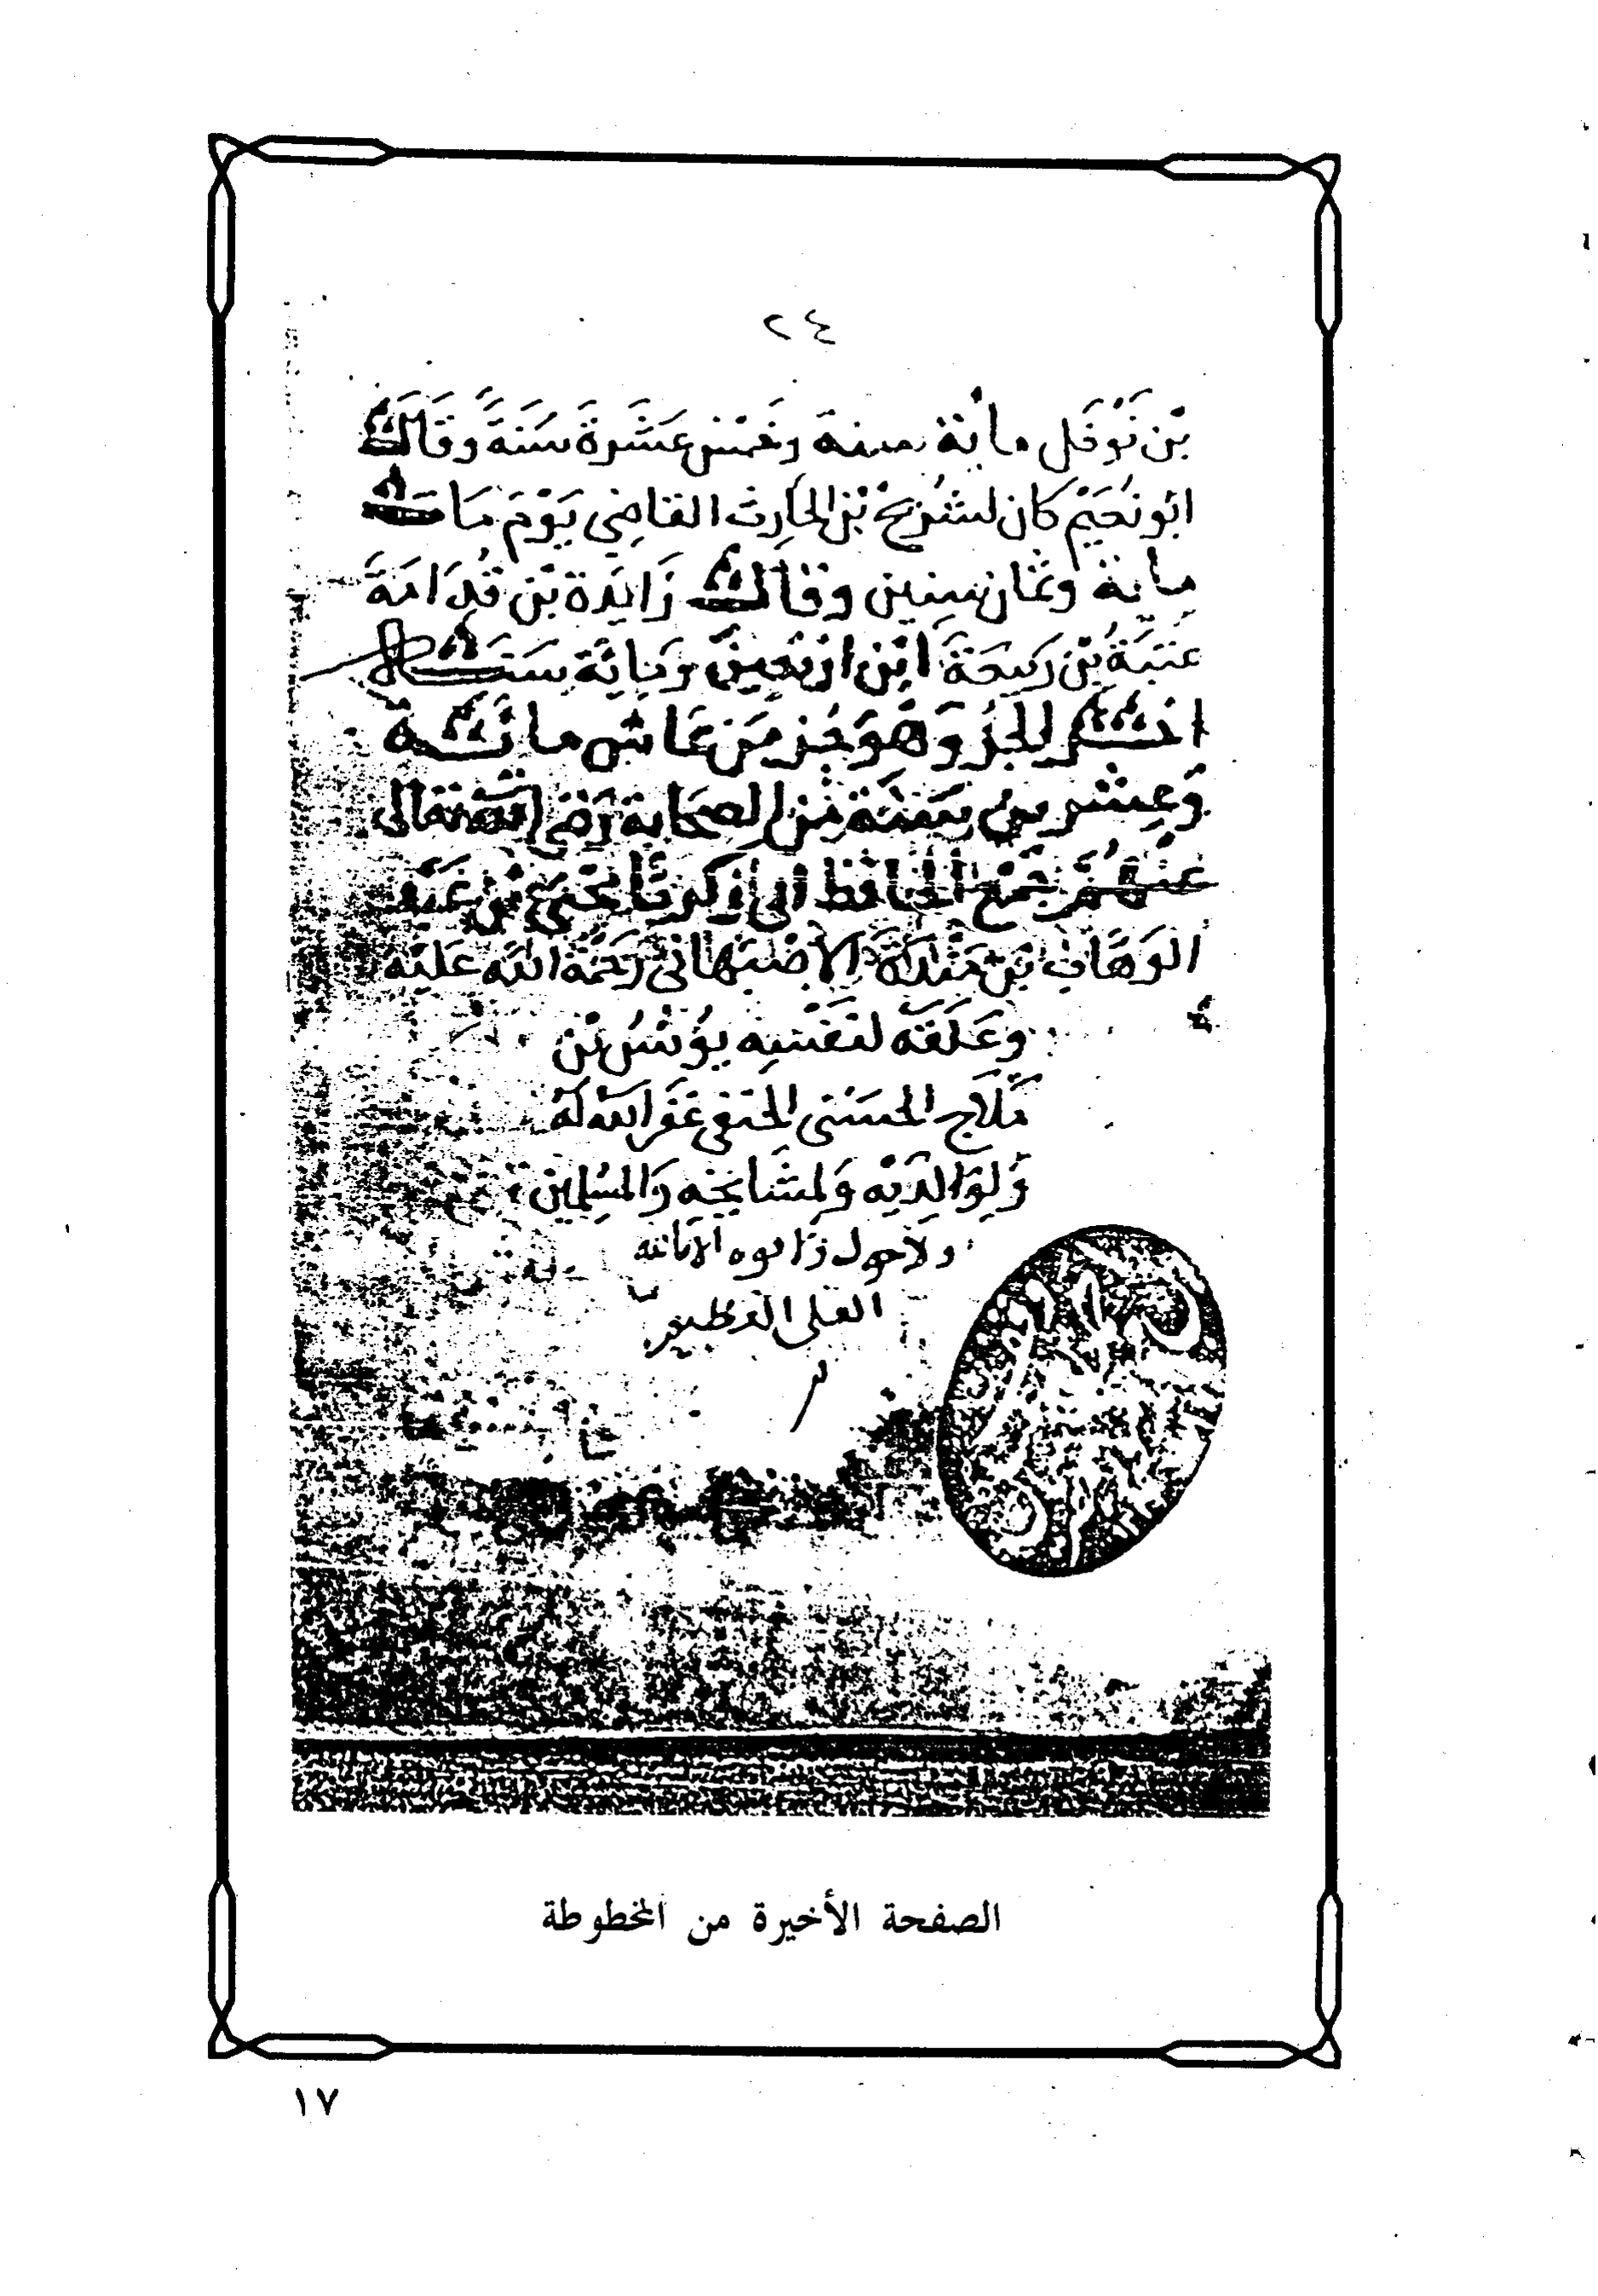 ٢٤
بْن نَوْفَل مائة سنة وخَمْس عَشَرَةَ سَنَةً وقَالَ
ابُو نُعَيْم كان لشُرَيْح بْن الحَارِث القاضِى يَوْمَ مَاتَ
مِائة وثمان سنين وقالَ زَايِدَة بْن قُدَامَةَ
عتبَةُ بْن رَبيعَةَ ابْن ارْبَعِينَ ومَائَة سَنَة
اخر الجُزْ وَهُوَ جُزْ مَن عَاشَ مائة
وَعِشرين سَنَة مِن الصَحَابة رَضِىَ الله تعَالى
عَنْهُمْ جَمْع الحَافظ ابى زَكَرِيَّا يَحْيَى بْن عَبْد
الوَهَّاب ابْن مَنْدَة الاصْبَهَانى رَحْمَةُ الله عَلَيْه
وعَلَّقَه لنَفْسِه يُوْسُ بْن
مَلَاج الحسَنى الحنفى غفَرَ الله لَهُ
وَلِوَالِدَيْه وَلمشَايخه وَالمسْلِمِين
ولا حول ولا قوه الا بالله
العلى العظيم
الصفحة الأخيرة من المخطوطة
١٧